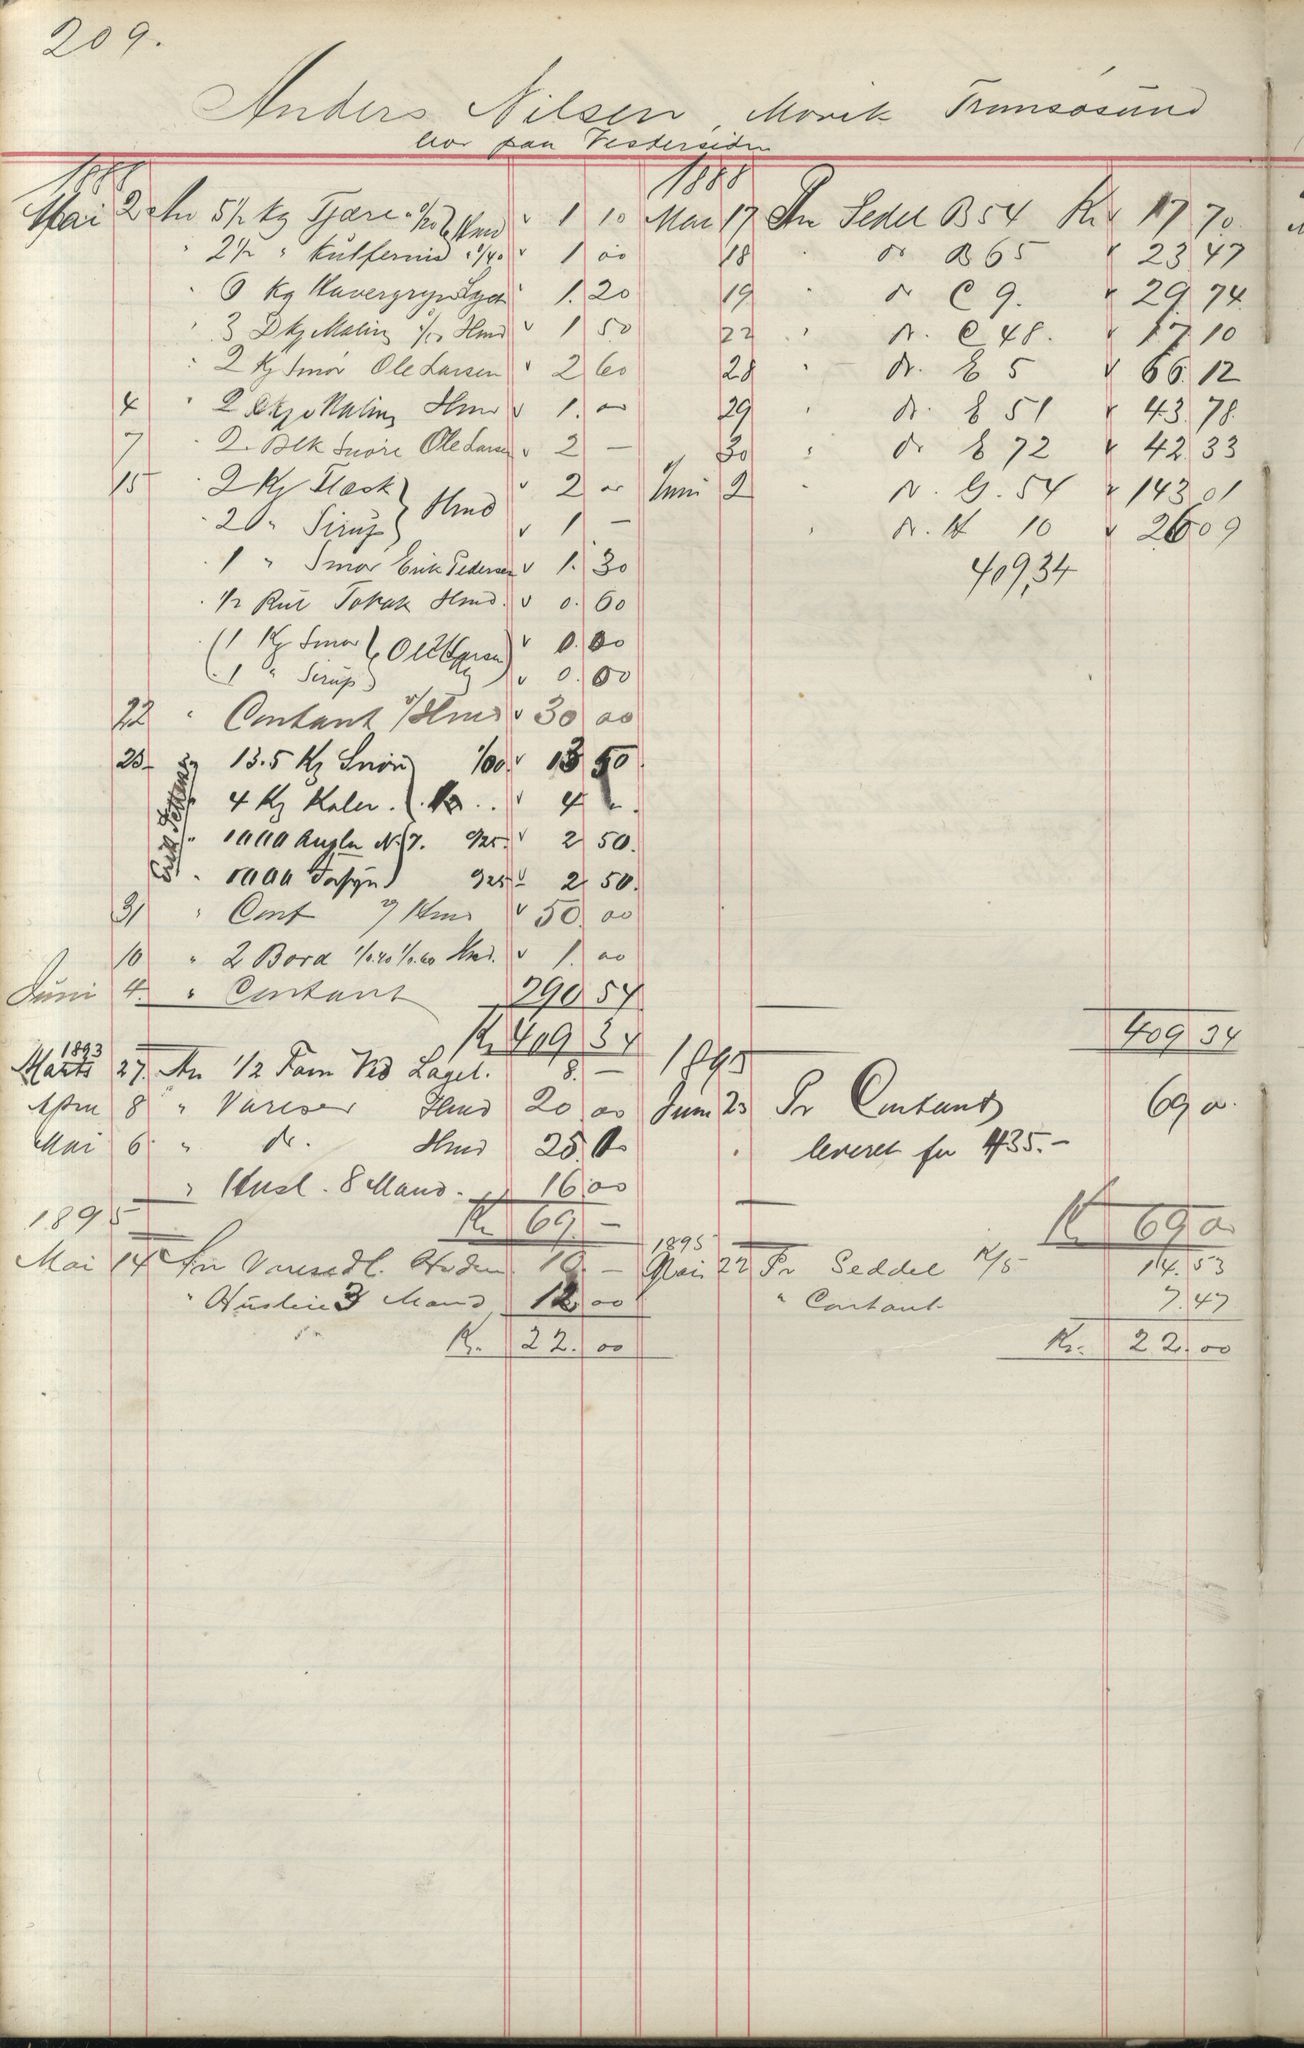 209.
Anders Nilsen, Morvik Tromsøsund
bor paa Vestersiden
1888
Mai 2 An 5½ Kg Tjære 0/20 Hmd 1 10
" 2½ " Kulfernis 0/40 1 00
" 6 Kg Havergryn Laget 1. 20
" 3 Dkg Maling 0/50 Hmd 1 50
" 2 Kg Smør Ole Larsen 2 60
4 " 2 Dkg Maling Hmd 1. 00
7 " 2 Blk Snøre Ole Larsen 2 —
15 " 2 Kg Flæsk 2 00
" 2 " Sirup Hmd 1 —
" 1 " Smør Erik Pedersen 1. 30
" ½ Rul Tobak Hmd. 0. 60
(1 Kg Smør Ole Larsen) 0. 00
(1 " Sirup 0. 00
22 " Contant Hmd 30 00
25 13.5 Kg Snøre 1/00 13 50
4 Kg Kaler 4 "
" 1000 Angler No 7. 0/25 2 50.
" 1000 Forsyn 0/25 2 50.
Erik Pettersen
31 " Cont Hmd 50 00
10 " 2 Bord 1/0.40 1/0.60 Hmd. 1. 00
Juni 4. " Contant 290 54
Kr 409 34
1888
Mai 17 Pr Sedel B 54 Kr 17 70
18 " do B 65 23 47
19 " do C 9. 29 74
22 " do. C 48. 17 10
28 " do. E 5 66. 12
29 " do. E 51 43 78
30 " do E 72 42 33
Juni 2 " do. G. 54 143 01
" do. H 10 26 09
409,34
409 34
1893
Marts 27. An 1/2 Favn Ved Laget. 8. —
April 8 " Vareser Hmd 20 00
Mai 6 " do. Hmd 25. 00
" Husl. 8 Mand. 16 00
Kr 69. —
1893
Juni 23 Pr Contant 69 00
leveret for 435.—
Kr 69 00
1895
Mai 14 An Varesedl. 10. —
" Husleie 3 Mand 12 00
Kr. 22. 00
1895
Mai 22 Pr Seddel K/5 14. 53
" Contant 7. 47
Kr. 22. 00